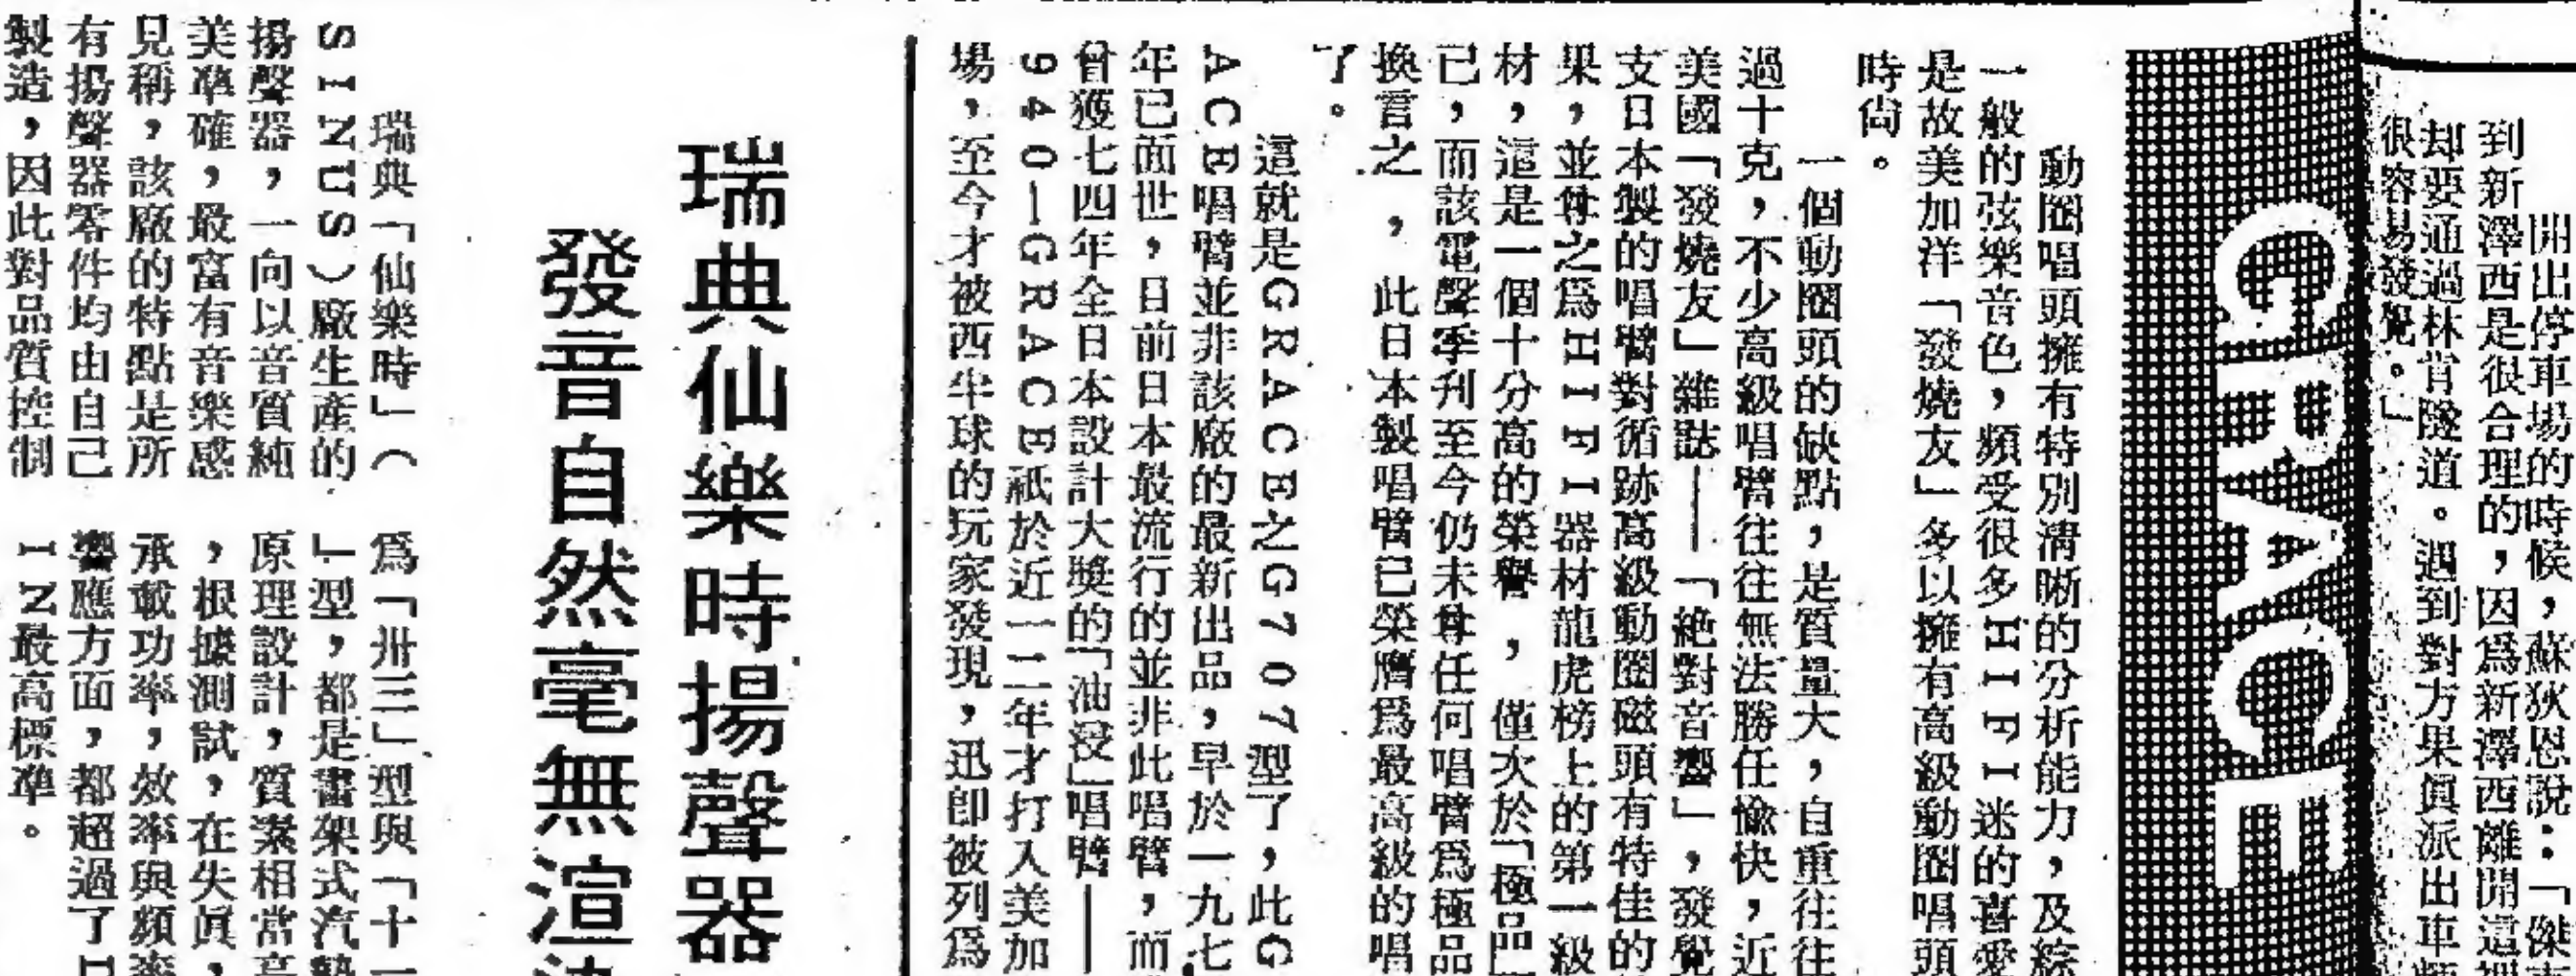 開出停車場的時候，蘇狄恩說：「傑
到新澤西是很合理的，因爲新澤西離開這
却要通過林肯隧道。遇到對方果眞派出車
很容易發覺。」
GRACE
動圈唱頭擁有特別淸晰的分析能力，及綜
一般的弦樂音色，頻受很多ＨＩＦＩ迷的喜愛
是故美加洋「發燒友」多以擁有高級動圈唱頭
時尙。
一個動圈頭的缺點，是質量大，自重往往
過十克，不少高級唱臂往往無法勝任愉快，近
美國「發燒友」雜誌——「絶對音響」，發覺
支日本製的唱臂對循跡高級動圈磁頭有特佳的
果，並尊之爲ＨＩＦＩ器材龍虎榜上的第一級
材，這是一個十分高的榮譽，僅次於「極品
已，而該電聲季刋至今仍未尊任何唱臂爲極品
換言之，此日本製唱臂已榮膺爲最高級的唱
了。
這就是ＧＲＡＣＥ之Ｇ７０７型了，此Ｇ
ＡＣＥ唱臂並非該廠的最新出品，早於一九七
年已面世，日前日本最流行的並非此唱臂，而
曾獲七四年全日本設計大獎的「油浸」唱臂——
９４０—ＧＲＡＣＥ祇於近一二年才打入美加
場，至今才被西半球的玩家發現，迅卽被列爲
瑞典仙樂時揚聲器
發音自然毫無渲
瑞典「仙樂時」（
ＳＩＮＵＳ）廠生產的
揚聲器，一向以音質純
美準確，最富有音樂感
見稱，該廠的特點是所
有揚聲器零件均由自己
製造，因此對品質控制
爲「卅三」型與「十一
」型，都是書架式汽墊
原理設計，質素相當高
，根據測試，在失眞，
承載功率，效率與頻率
響應方面，都超過了Ｄ
ＩＮ最高標準。